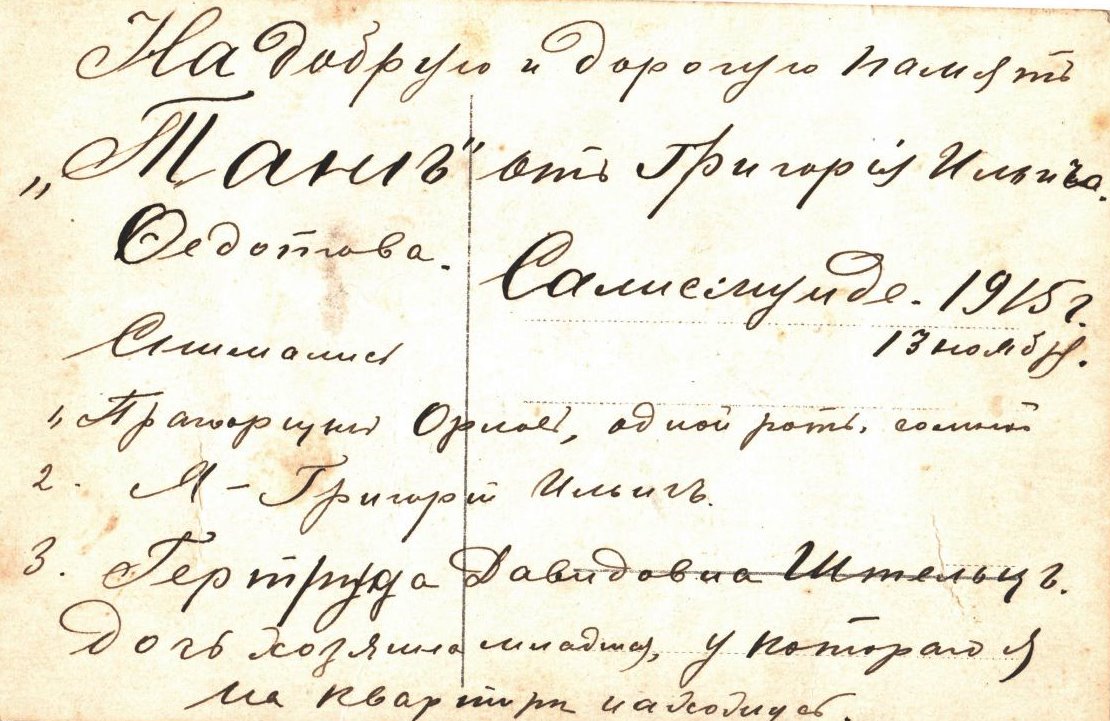 На добрую и дорогую память
„Танѣ" отъ Григорія Ильича.
Федотова.
Салисмунде. 1915 г.
13 ноября.
Снимались
1, Прапорщикъ Орловъ, одной роты со мной
2. Я – Григорій Ильичъ.
3. Гертруда Давидовна Штельцъ.
дочь хозяина младшая, у котораго я
на квартирѣ нахожусь.